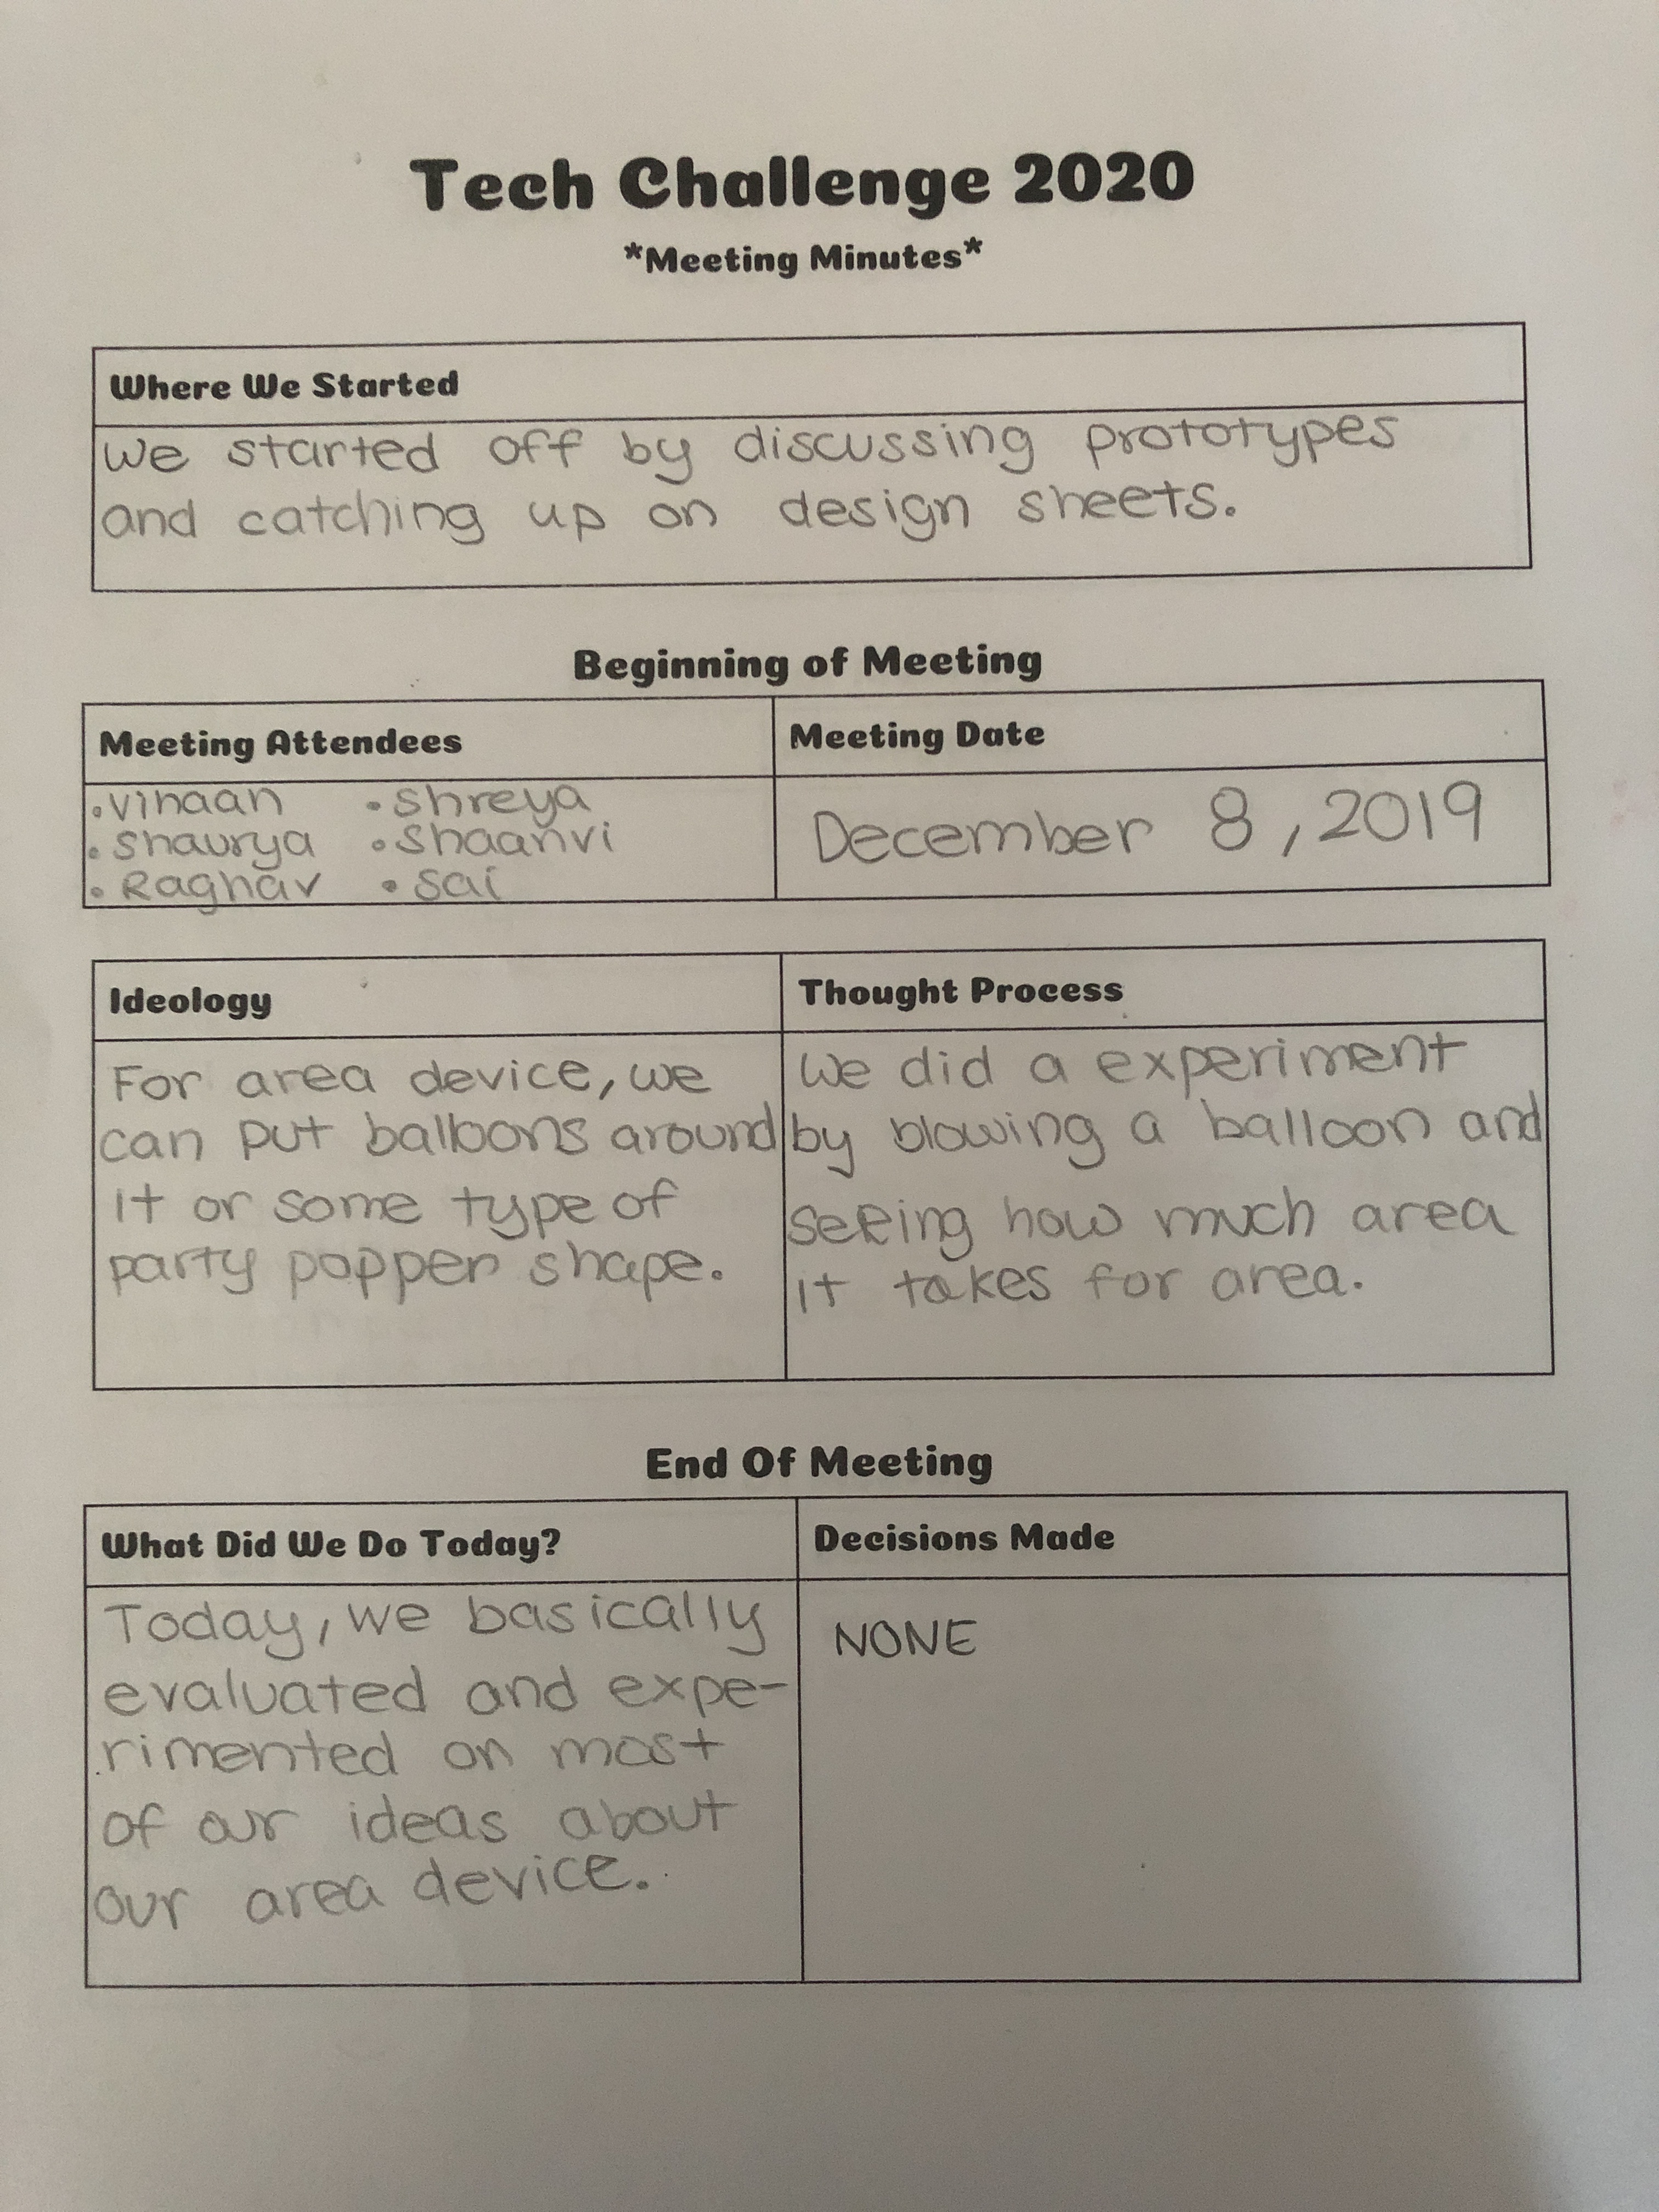 Tech Challenge 2020
*Meeting Minutes*
Where We Started
We started off by discussing prototypes
and catching up on design sheets.
Beginning of Meeting
Meeting Attendees
Meeting Date
•vihaan •shreya
•shaurya •shaanvi
•Raghav •sai
December 8, 2019
Ideology
For area device, we
can put balloons around
it or some type of
party popper shape.
Thought Process
We did a experiment
by blowing a balloon and
seeing how much area
it takes for area.
End Of Meeting
What Did We Do Today?
Today, we basically
evaluated and expe-
rimented on most
of our ideas about
our area device.
Decisions Made
NONE